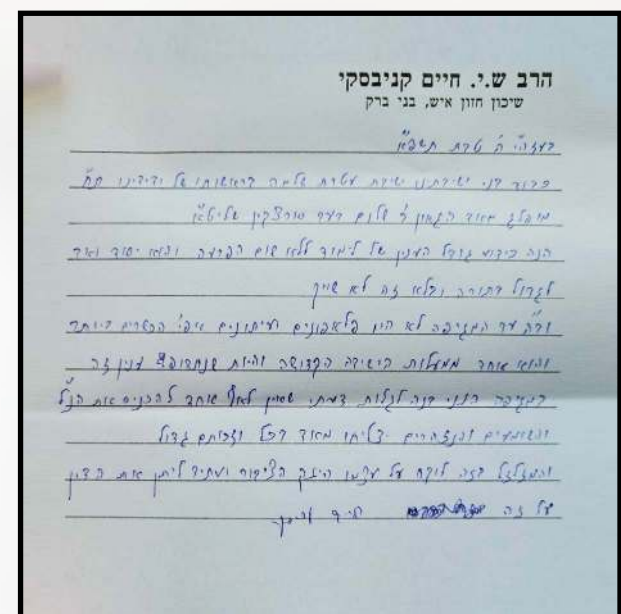 הרב ש.י. חיים קניבסקי
שיכון חזון איש, בני ברק
בעזהי"ת ה' טבת תשפ"א
כבוד בני ישיבתנו ישיבת עטרת שלמה בראשותו של ידידינו
מופלג מאוד הגאון ר' שלום בער סורצקין שליט"א
הנה כידוע גודל הענין של לימוד ללא שום הפרעה והוא יסוד
לגדול בתורה ובלא זה לא שייך
וב"ה עד המגיפה לא היו פלאפונים ועיתונים אפי' הכשרים ביותר
והוא אחד ממעלות הישיבה הקדושה והיות שנתרופף ענין זה
במגיפה הנני בזה לגלות דעתי שאין לאף אחד להכניס את הנ"ל
והשומעים והנזהרים יצליחו מאוד בכל וזכותם גדול
והמזלזל בזה לוקח על עצמו היזק הציבור ועתיד ליתן את הדין
על זה